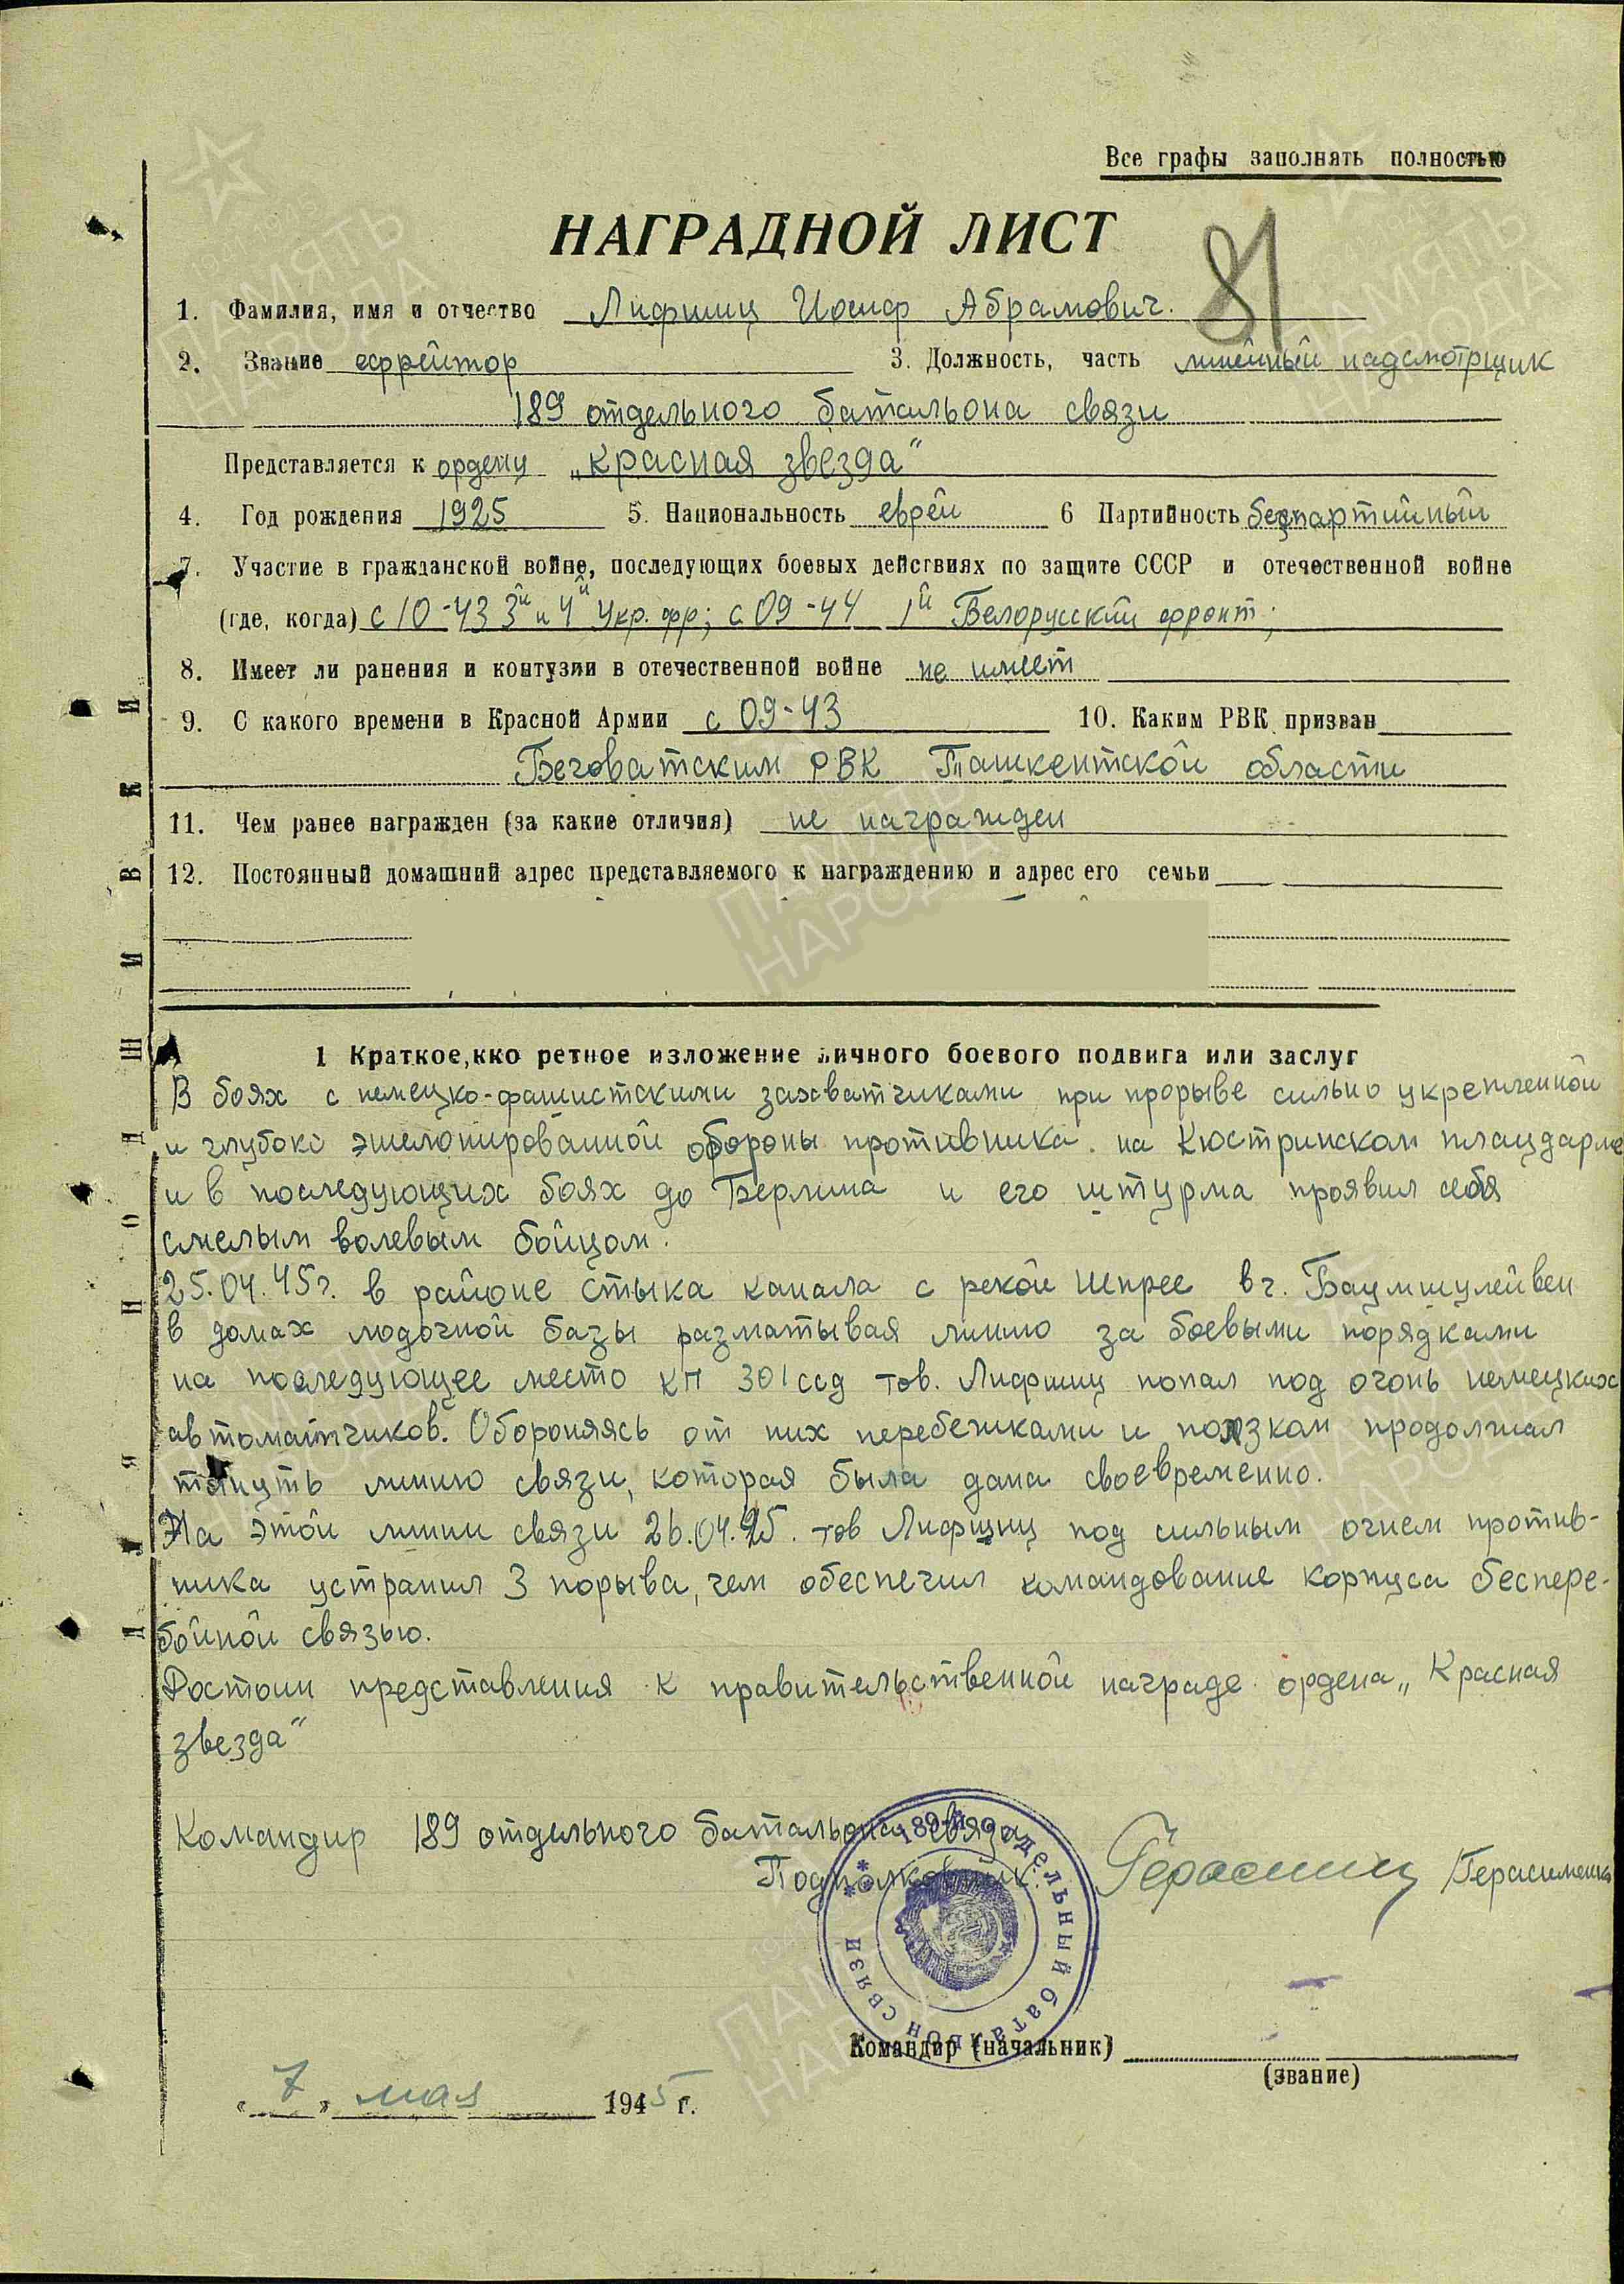 Все графы заполнять полностью
НАГРАДНОЙ ЛИСТ
81
1. Фамилия, имя и отчество Лифшиц Иосиф Абрамович.
2. Звание ефрейтор 3. Должность, часть линейный надсмотрщик
189 отдельного батальона связи
Представляется к ордену „Красная звезда"
4. Год рождения 1925 5. Национальность еврей 6 Партийность безпартийный
7. Участие в гражданской войне, последующих боевых действиях по защите СССР и отечественной войне
(где, когда) с 10-43 3й и 4й Укр. фр; с 09-44 1й Белорусский фронт;
8. Имеет ли ранения и контузии в отечественной войне не имеет
9. С какого времени в Красной Армии с 09-43 10. Каким РВК призван
Беговатским РВК Ташкентской области
11. Чем ранее награжден (за какие отличия) не награжден
12. Постоянный домашний адрес представляемого к награждению и адрес его семьи
1 Краткое,кко ретное изложение личного боевого подвига или заслуг
В боях с немецко-фашистскими захватчиками при прорыве сильно укрепленной
и глубоко эшелонированной обороны противника на Кюстринском плацдарме
и в последующих боях до Берлина и его штурма проявил себя
смелым волевым бойцом.
25.04.45г. в районе стыка канала с рекой Шпрее в г. Баумшулейвен
в домах лодочной базы разматывая линию за боевыми порядками
на последующее место КП 301 ссд тов. Лифшиц попал под огонь немецких
автоматчиков. Обороняясь от них перебежками и ползком продолжал
тянуть линию связи, которая была дана своевременно.
На этой линии связи 26.04.45. тов Лифшиц под сильным огнем против-
ника устранил 3 порыва, чем обеспечил командование корпуса беспере-
бойной связью.
Достоин представления к правительственной награде ордена „Красная
звезда"
Командир 189 отдельного батальона связи
Подполковник Герасименко
189-й отдельный батальон связи
Командир (начальник)
(звание)
„7" мая 1945 г.
ДЛЯ ПОДШИВКИ
ПАМЯТЬ НАРОДА